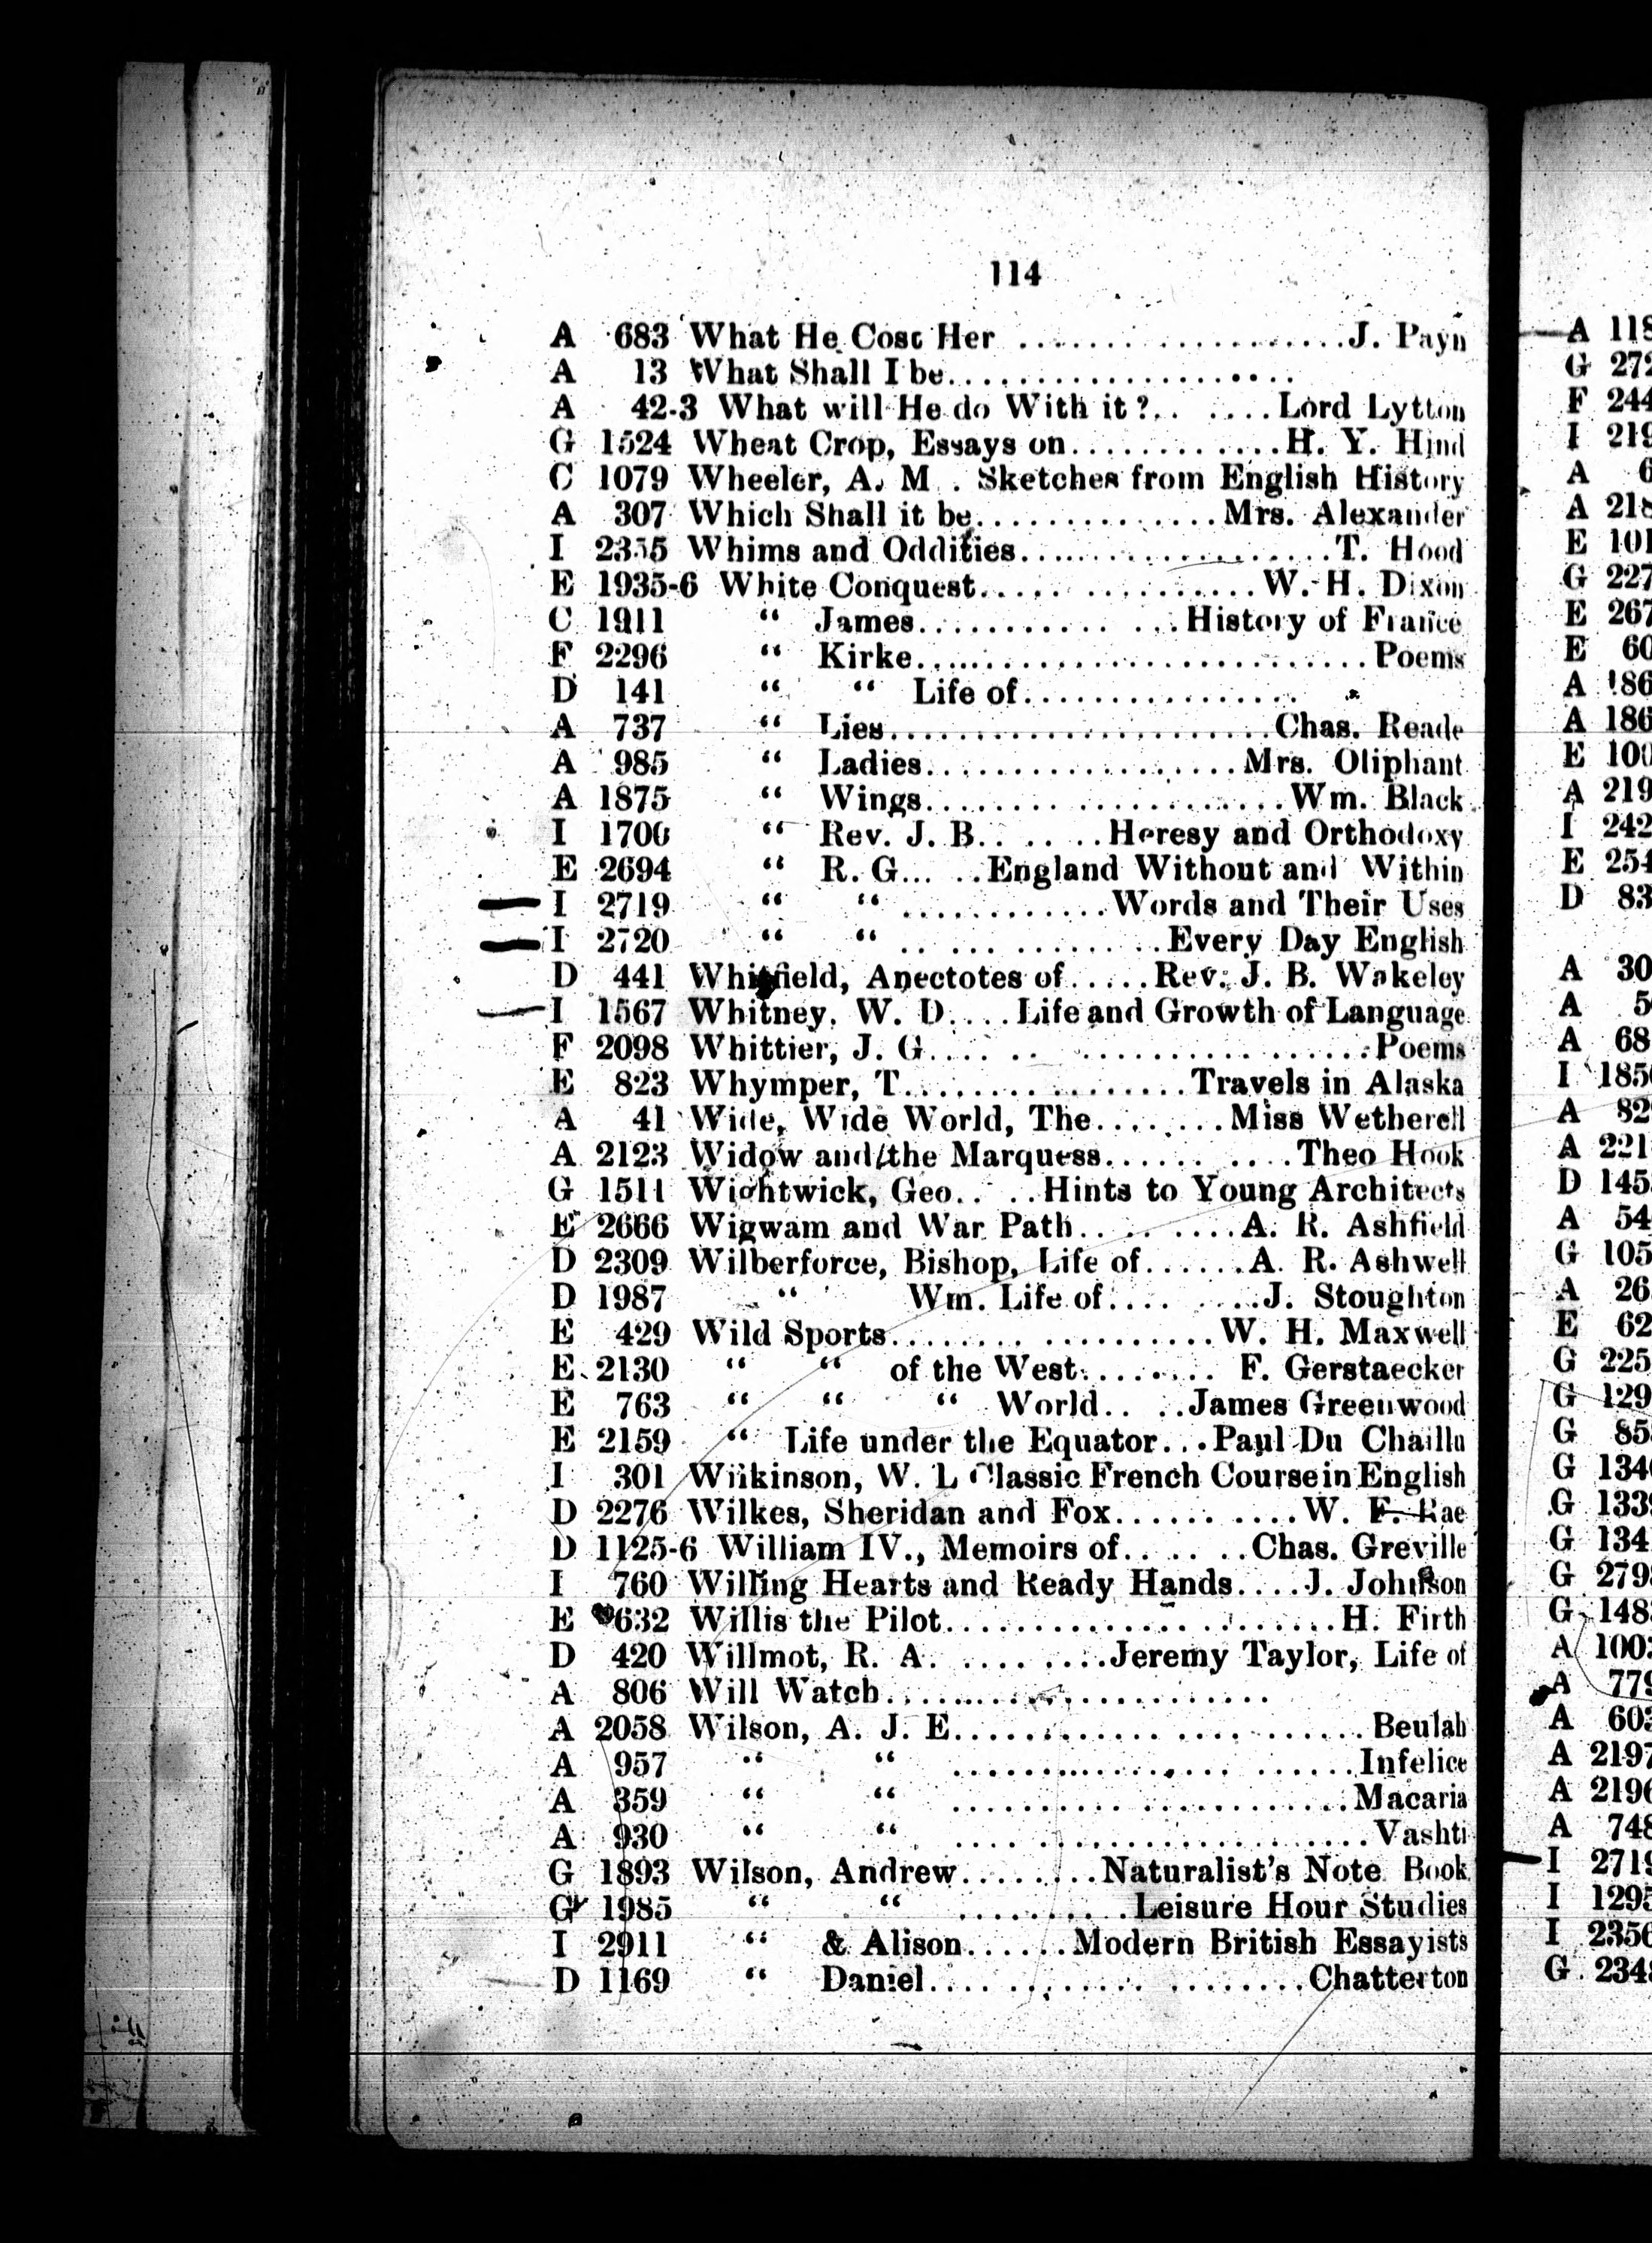 114
A 683 What He Cost Her ....................J. Payn
A 13 What Shall I be......................
A 42-3 What will He do With it ?.. .....Lord Lytton
G 1524 Wheat Crop, Essays on.............H. Y. Hind
C 1079 Wheeler, A. M . Sketches from English History
A 307 Which Shall it be...............Mrs. Alexander
I 2355 Whims and Oddities....................T. Hood
E 1935-6 White Conquest...................W. H. Dixon
C 1911 “ James............ ...History of France
F 2296 “ Kirke.............................Poems
D 141 “ “ Life of..................
A 737 “ Lies........................Chas. Reade
A 985 “ Ladies....................Mrs. Oliphant
A 1875 “ Wings.......................Wm. Black
I 1700 “ Rev. J. B.. .. ...Heresy and Orthodoxy
E 2694 “ R. G... ..England Without and Within
I 2719 “ “ .............Words and Their Uses
I 2720 “ “ .. ..............Every Day English
D 441 Whitfield, Anectotes of.....Rev. J. B. Wakeley
I 1567 Whitney, W. D....Life and Growth of Language
F 2098 Whittier, J. G.... .. ...................Poems
E 823 Whymper, T..................Travels in Alaska
A 41 Wide, Wide World, The........Miss Wetherell
A 2123 Widow and the Marquess............Theo Hook
G 1511 Wightwick, Geo.. ...Hints to Young Architects
E 2666 Wigwam and War Path..........A. R. Ashfield
D 2309 Wilberforce, Bishop, Life of......A. R. Ashwell
D 1987 “ Wm. Life of.... .....J. Stoughton
E 429 Wild Sports.....................W. H. Maxwell
E 2130 “ “ of the West......... F. Gerstaecker
E 763 “ “ “ World.. ..James Greenwood
E 2159 “ Life under the Equator...Paul Du Chaillu
I 301 Wilkinson, W. L Classic French Course in English
D 2276 Wilkes, Sheridan and Fox...........W. F. Rae
D 1125-6 William IV., Memoirs of.. .. ..Chas. Greville
I 760 Willing Hearts and Ready Hands....J. Johnson
E 632 Willis the Pilot.........................H. Firth
D 420 Willmot, R. A. .... .....Jeremy Taylor, Life of
A 806 Will Watch........................
A 2058 Wilson, A. J. E..........................Beulah
A 957 “ “ ................ ......Infelice
A 359 “ “ .........................Macaria
A 930 “ “ .... .....................Vashti
G 1893 Wilson, Andrew.........Naturalist's Note Book
G 1985 “ “ ...........Leisure Hour Studies
I 2911 “ & Alison......Modern British Essayists
D 1169 “ Daniel.... ........ ........Chatterton
A 118
G 272
F 244
I 219
A 6
A 218
E 101
G 227
E 267
E 60
A 186
A 186
E 100
A 219
I 242
E 254
D 83
A 30
A 5
A 68
I 185
A 82
A 221
D 145
A 54
G 105
A 26
E 62
G 225
G 129
G 85
G 134
G 133
G 134
G 279
G 148
A 100
A 779
A 603
A 2197
A 2196
A 748
I 2719
I 1295
I 2356
G 234